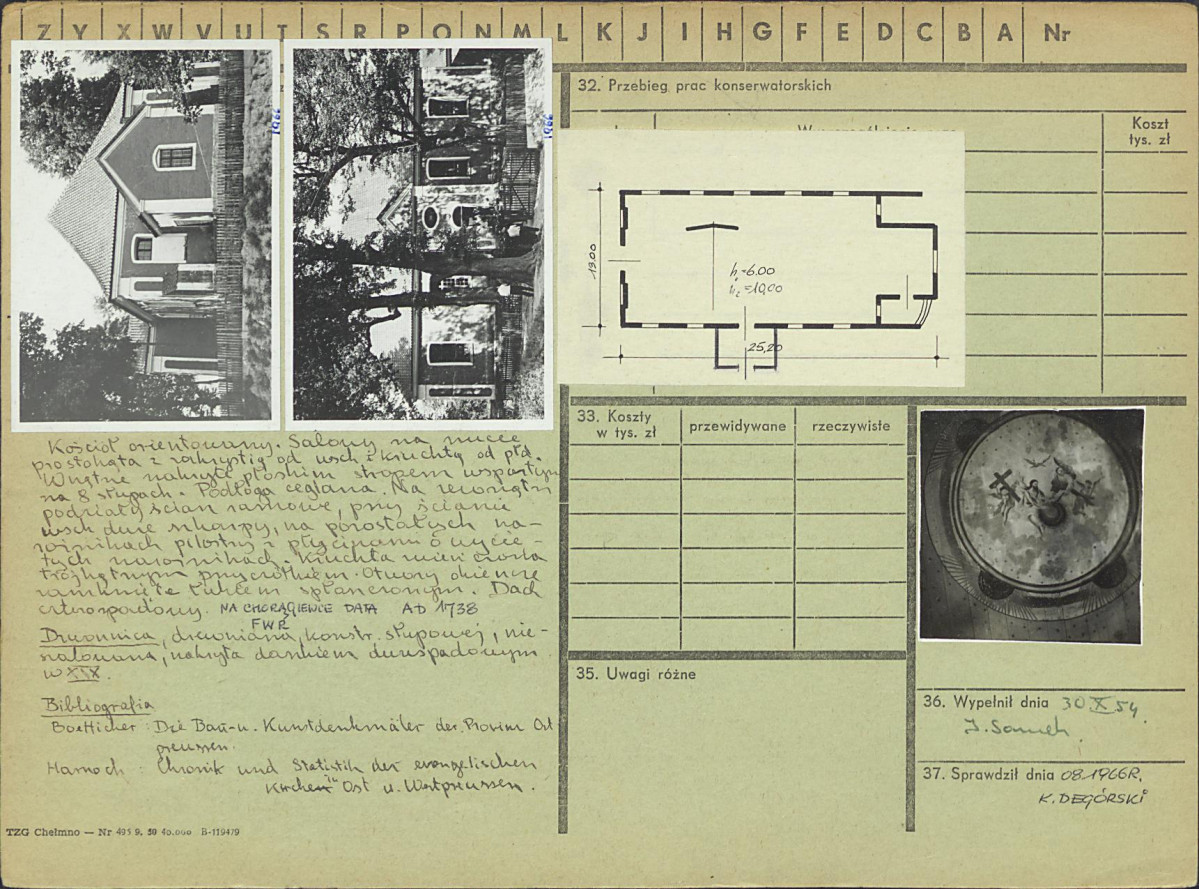 Z Y X W V U T S R P O N M L K J I H G F E D C B A Nr
1966
1966
Kościół orientowany. Salowy na rzucie
prostokąta z zakrystią od wsch i kruchtą od płd.
Wnętrze nakryte płaskim stropem wspartym
na 8 słupach. Podłoga ceglana. Na zewnątrz
podziały ścian ramowe, przy ścianie
wsch dwie szkarpy, na pozostałych na-
rożnikach pilastry z płycinami o wycię-
tych narożnikach. Kruchta
trójkątnym przyczółkiem. Otwory okienne
zamknięte łukiem spłaszczonym. Dach
czterospadowy. NA CHORĄGIEWCE DATA AD 1738
FWR
Dzwonnica, drewniana, konstr. słupowej, nie-
szalowana, nakryta daszkiem dwuspadowym
w XIX.
Bibliografia
Boetticher: Die Bau-u. Kunstdenkmäler der Provinz Ost
preussen.
Harnoch: Chronik und Statistik der evangelischen
Kirchen in Ost u. Westpreussen.
TZG Chełmno — Nr 495 9. 50 40.000 B-119479
32. Przebieg prac konserwatorskich
Koszt
tys. zł
13.00
h₁=6.00
h₂=10,00
25,20
33. Koszty
w tys. zł
przewidywane
rzeczywiste
35. Uwagi różne
36. Wypełnił dnia 30 X 54.
37. Sprawdził dnia 08.1966R.
K. DEGÓRSKI